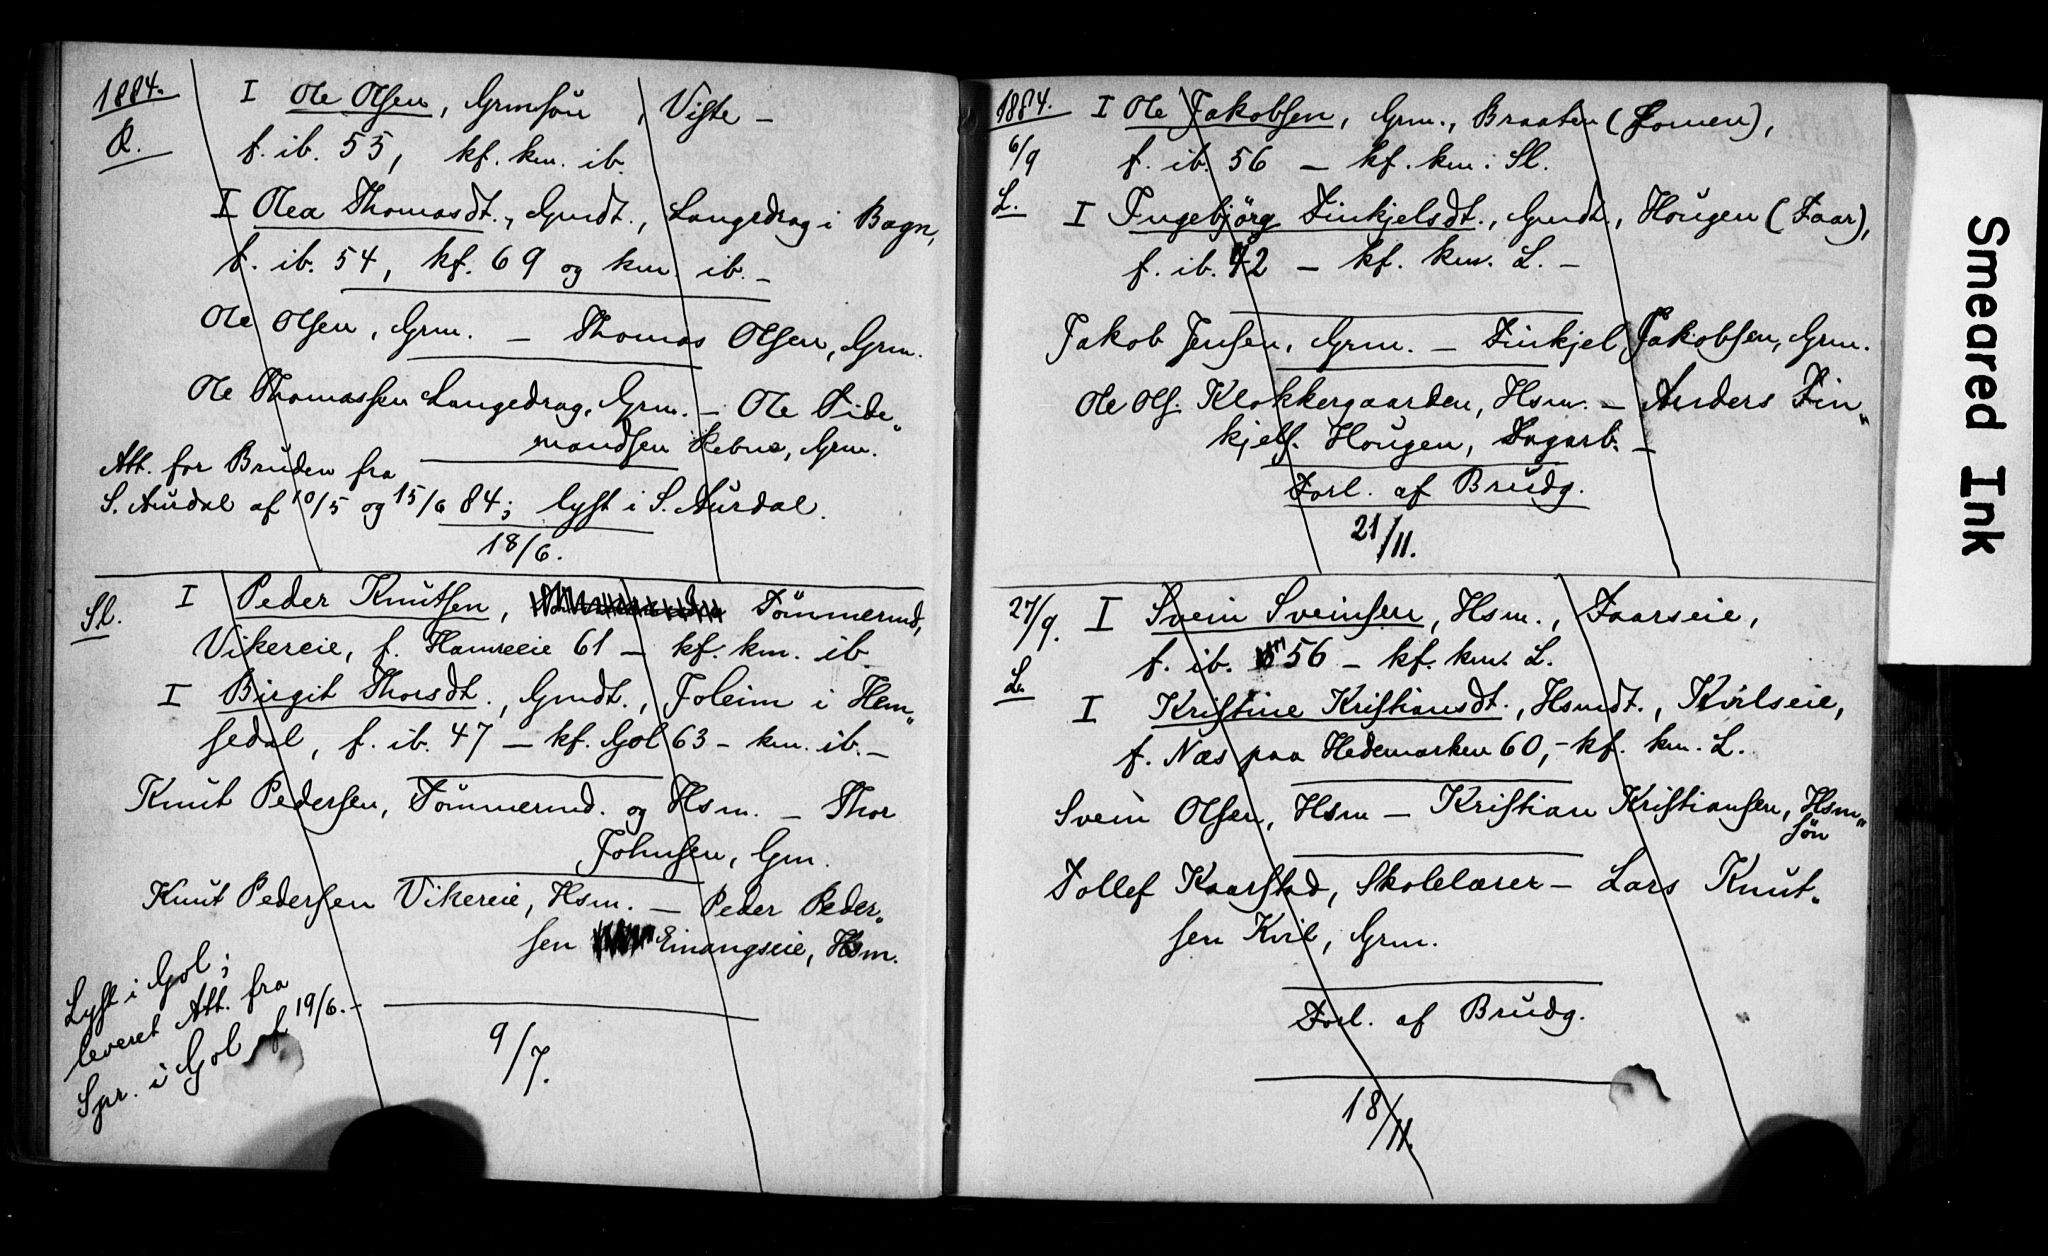 1884.
R.
I Ole Olsen, Grmsøn, Viste –
f. ib. 55, kf. km. ib.
I Olea Thomasdt., Gmdt., Langedrag i Bagn,
f. ib. 54, kf. 69 og km. ib. –
Ole Olsen, Grm. – Thomas Olsen, Grm.
Ole Thomassen Langedrag, Grm. – Ole Tide„
mandsen Rebne, Grm.
Att. for Bruden fra
S. Aurdal af 10/5 og 15/6 84; lyst i S. Aurdal.
18/6.
Sl.
I Peder Knutsen, Tömmermd,
Vikereie, f. Hamreeie 61 – kf. km. ib.
I Birgit Thorsdt., Gmdt., Joleim i Hem„
sedal, f. ib. 47 – kf. Gol 63 – km. ib. –
Knut Pedersen, Tömmermd. og Hsm. – Thor
Johnsen, Gm.
Knut Pedersen Vikereie, Hsm. – Peder Peder„
sen Einangseie, Hsm.
Lyst i Gol;
leveret Att. fra
Spr. i Gol af 19/6. –
9/7.
1884.
6/9
L.
I Ole Jakobsen, Grm., Braaten (Lomen),
f. ib. 56 – kf. km. Sl.
I Ingebjörg Finkjelsdt., Gmdt., Hougen (Faar),
f. ib. 42 – kf. km. L. –
Jakob Jensen, Grm. – Finkjel Jakobsen, Grm.
Ole Ols. Klokkergaarden, Hsm. – Anders Fin„
kjels. Hougen, Dagarb. –
Forl. af Brudg.
21/11.
27/9.
L.
I Svein Sveinsen, Hsm., Faarseie,
f. ib. 56 – kf. km. L.
I Kristine Kristiansdt., Hsmdt., Kvilseie,
f. Næs paa Hedemarken 60, – kf. km. L.
Svein Olsen, Hsm – Kristian Kristiansen, Hsm„
søn
Tollef Kaarstad, Skolelærer – Lars Knut„
sen Kvil, Grm.
Forl. af Brudg.
18/11.
Smeared Ink